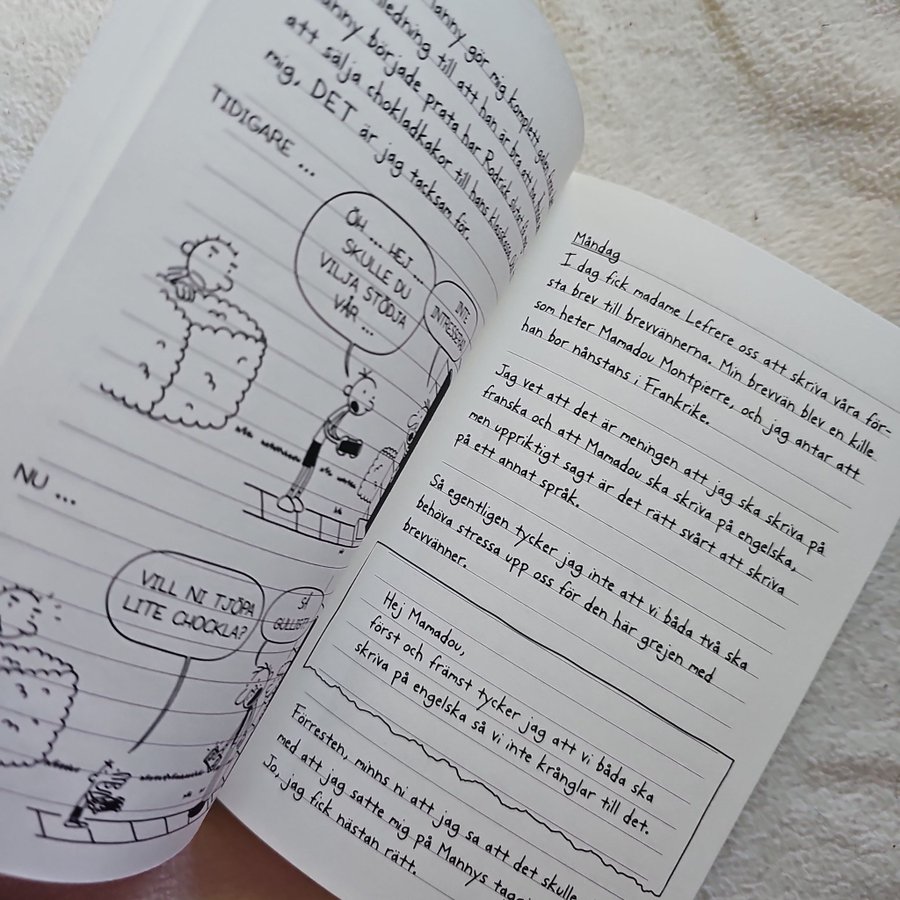 Manny gör mig komplett galen,
ledning till att han är bra att ha
Manny började prata har Rodrick
att sälja chokladkakor till hans klasskassa.
mig, DET är jag tacksam för.
TIDIGARE ...
ÖH ... HEJ ...
SKULLE DU
VILJA STÖDJA
VÅR ...
INTE
INTRESSERAD
NU ...
VILL NI TJÖPA
LITE CHOCKLA?
SÅ
GULLIGT!
Måndag
I dag fick madame Lefrere oss att skriva våra för-
sta brev till brevvännerna. Min brevvän blev en kille
som heter Mamadou Montpierre, och jag antar att
han bor nånstans i Frankrike.
Jag vet att det är meningen att jag ska skriva på
franska och att Mamadou ska skriva på engelska,
men uppriktigt sagt är det rätt svårt att skriva
på ett annat språk.
Så egentligen tycker jag inte att vi båda två ska
behöva stressa upp oss för den här grejen med
brevvänner.
Hej Mamadou,
först och främst tycker jag att vi båda ska
skriva på engelska så vi inte krånglar till det.
Förresten, minns ni att jag sa att det skulle
med att jag satte mig på Mannys
Jo, jag fick nästan rätt.